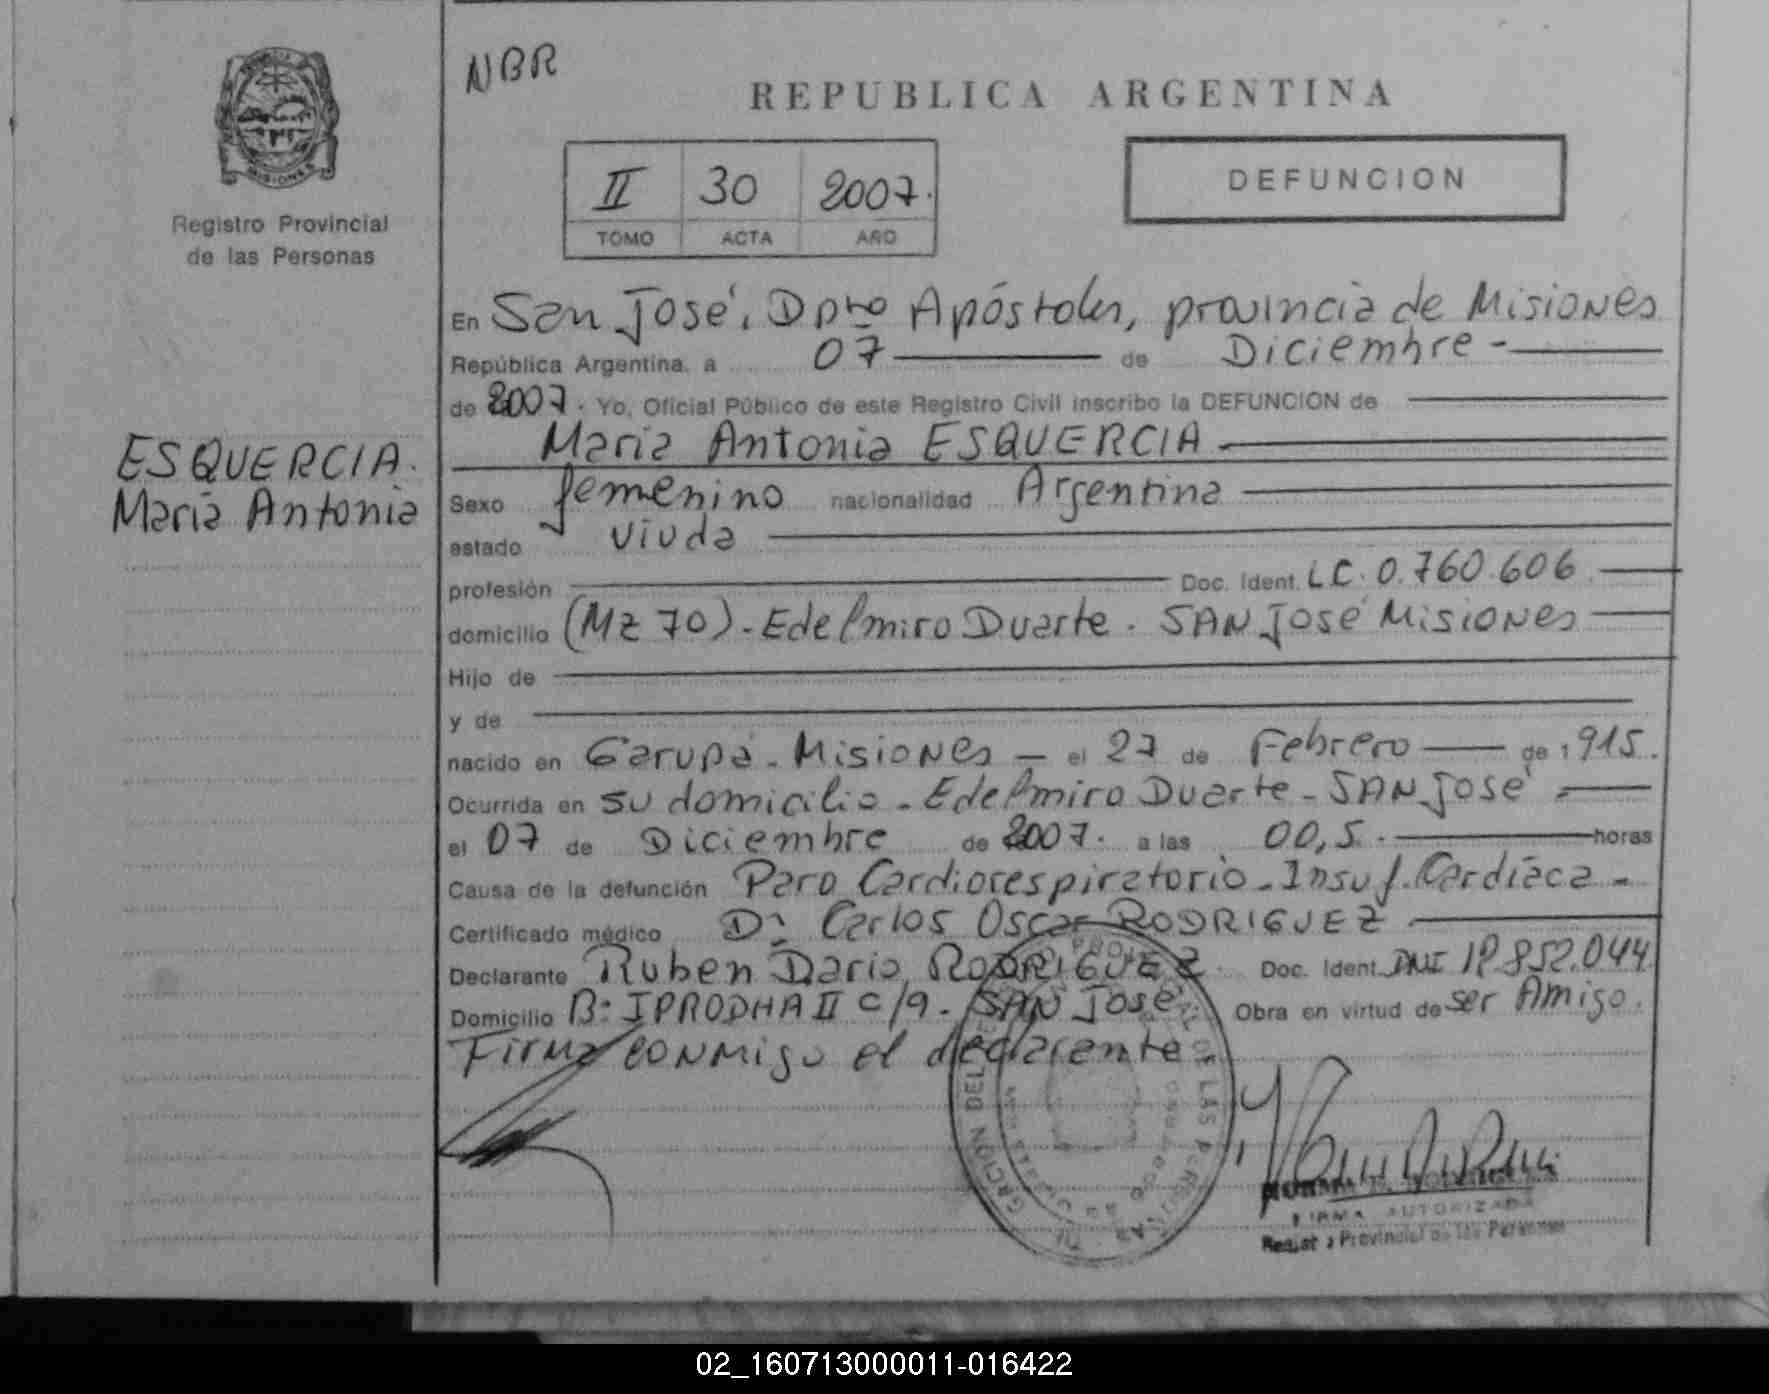 NBR
REPUBLICA ARGENTINA
MISIONES
Registro Provincial
de las Personas
II 30 2007.
TOMO ACTA AÑO
DEFUNCION
ESQUERCIA.
María Antonia
En San José, Dpto Apóstoles, provincia de Misiones
República Argentina, a 07 de Diciembre -
de 2007. Yo, Oficial Público de este Registro Civil inscribo la DEFUNCION de
María Antonia ESQUERCIA
Sexo femenino nacionalidad Argentina
estado viuda
profesión Doc. Ident. LC. 0.760.606
domicilio (Mz 70) - Edelmiro Duarte . SAN José Misiones
Hijo de
y de
nacido en Garupá - Misiones — el 27 de Febrero — de 1915.
Ocurrida en su domicilio - Edelmiro Duarte - SAN José
el 07 de Diciembre de 2007. a las 00,5. horas
Causa de la defunción Paro Cardiorespiratorio - Insuf. Cardíaca -
Certificado médico Dr. Carlos Oscar RODRIGUEZ
Declarante Ruben Dario RODRIGUEZ Doc. Ident. DNI 18.852.044
Domicilio B: IPRODHA II c/9 - SAN José Obra en virtud de ser Amigo.
Firma conmigo el declarente
FIRMA AUTORIZADA
Provincial de las Personas
02_160713000011-016422